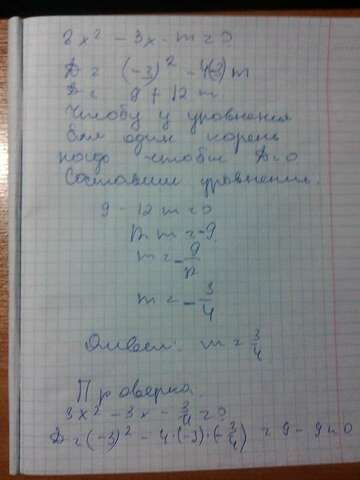 3x² - 3x - m = 0
D = (-3)² - 4(-3) m
D = 9 + 12 m
Чтобы у уравнения
был один корень
надо чтобы D = 0
Составим уравнение:
9 - 12 m = 0
12 m = -9
m = -9/12
m = -3/4
Ответ: m = 3/4
Проверка.
3x² - 3x - 3/4 = 0
D = (-3)² - 4·(-3)·(-3/4) = 9 - 9 = 0